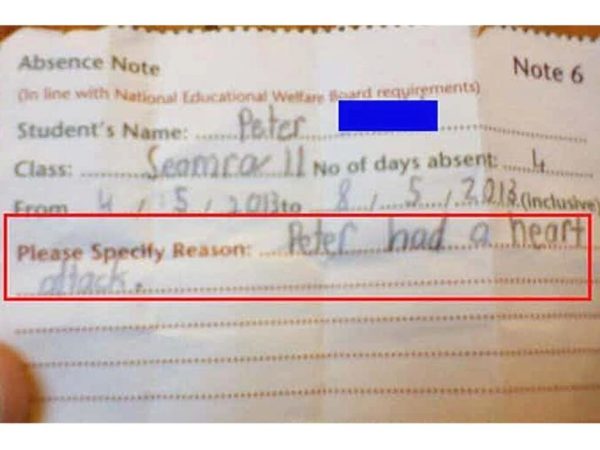 Absence Note
Note 6
(In line with National Educational Welfare Board requirements)
Student's Name: Peter
Class: Seomra 11 No of days absent: 4
From 4 / 5 / 2013 to 8 / 5 / 2013 (inclusive)
Please Specify Reason: Peter had a heart
attack.